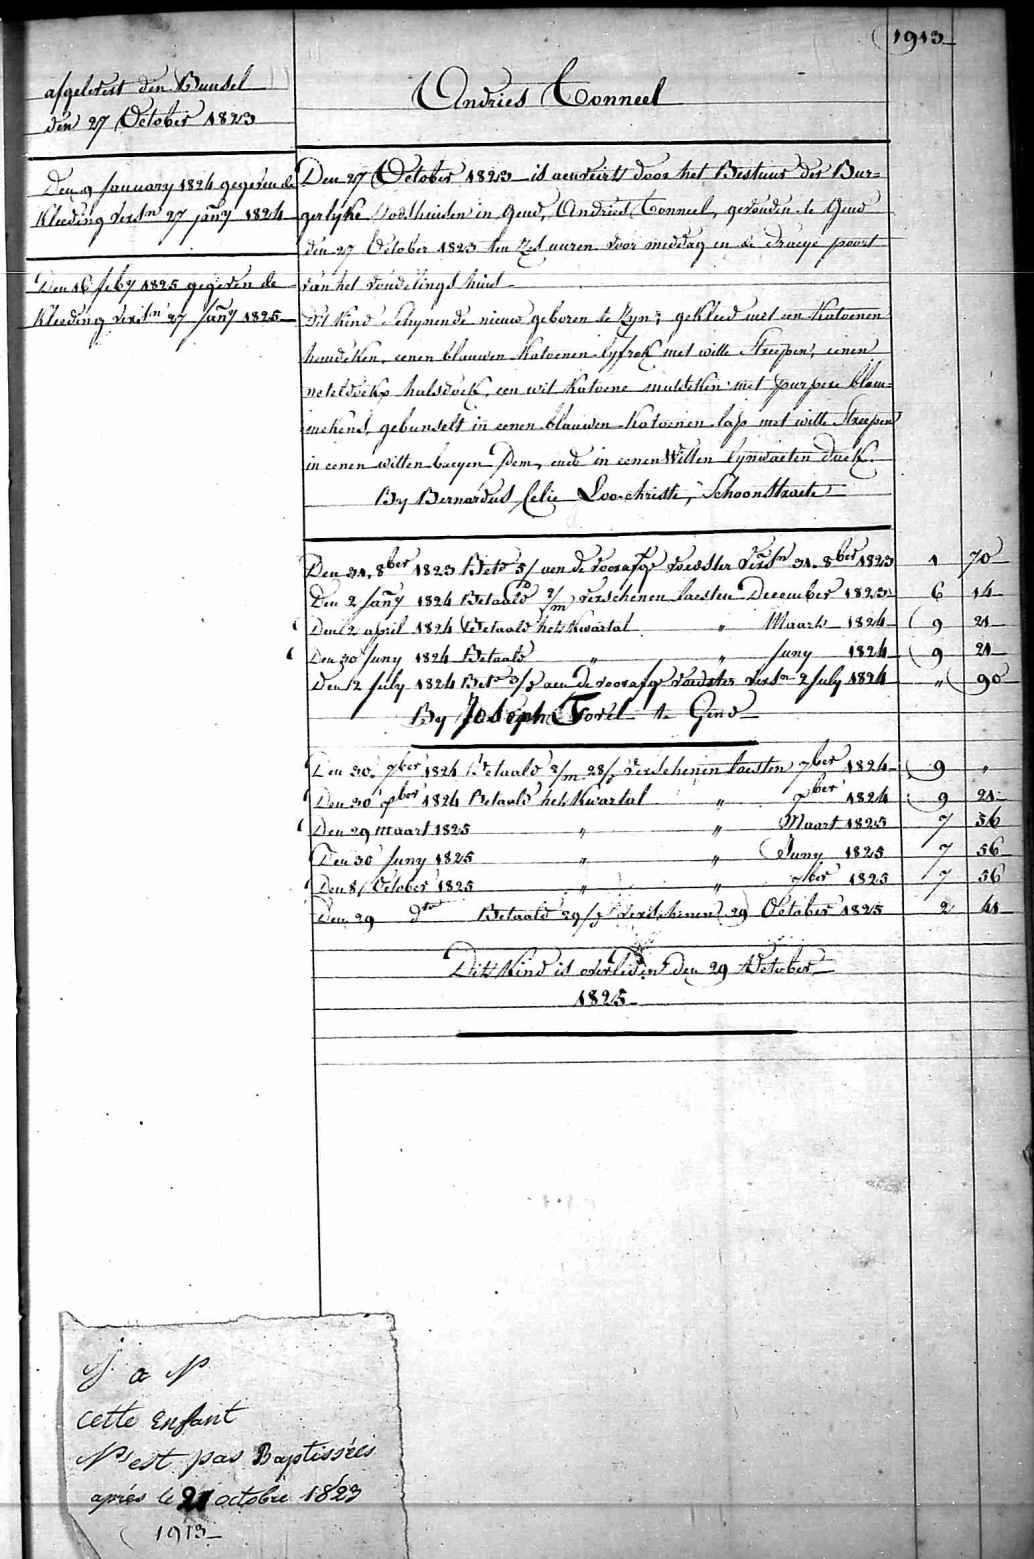 1913
afgelevert den Bunsel
den 27 October 1823
Andries Tonneel
Den 9 January 1824 gegeven de
Kleeding versn 27 jany 1824
Den 16 feby 1825 gegeven de
Kleeding versn 27 Jany 1825
Den 27 October 1823 is aenveirt door het Bestuer der Bur-
gerlyke Godshuisen in Gend, Andries Tonneel, gevonden te Gend
den 27 October 1823 ten zes uuren voor middag in de Draeye poort
van het vondelings huis
Dit kind schynende nieuw geboren te zyn, gekleed met een katoenen
hemdeken, eenen blauwen katoenen lyfrok met witte streepen, eenen
neteldoekx halsdoek, een wit katoene mutseken met purpere blom-
mekens, gebunselt in eenen blauwen katoenen lap met witte streepen
in eenen witten baeyen Pem, ende in eenen Witten lynwaeten doek.
By Bernardus Celie Loochristi, Schoonstraete
Den 31. 8ber 1823 Betd 5/ aen de voorafge voedster versn 31. 8ber 1823 1 70
Den 2 Jany 1824 Betaald 2/m verschenen laesten December 1823 6 14
Den 2 april 1824 Betaald het Kwartal " Maart 1824 9 21
Den 30 Juny 1824 Betaald " " Juny 1824 9 21
Den 12 July 1824 Betd 3/ aen de voorafge voedster versn 2 July 1824 " 90
By Joseph Torel te Gend
Den 30. 7ber 1824 Betaald 2/m 28/ verschenen laesten 7ber 1824 9 "
Den 30 Xber 1824 Betaald het Kwartal " Xber 1824 9 21
Den 29 maart 1825 " " Maart 1825 7 56
Den 30 Juny 1825 " " Juny 1825 7 56
Den 8 October 1825 " " 7ber 1825 7 56
Den 29 dto Betaald 29/ verschenen 29 October 1825 2 41
Dit Kind is overleden den 29 October
1825
J a N
cette Enfant
N'est pas Baptissées
après le 21 octobre 1823
1913